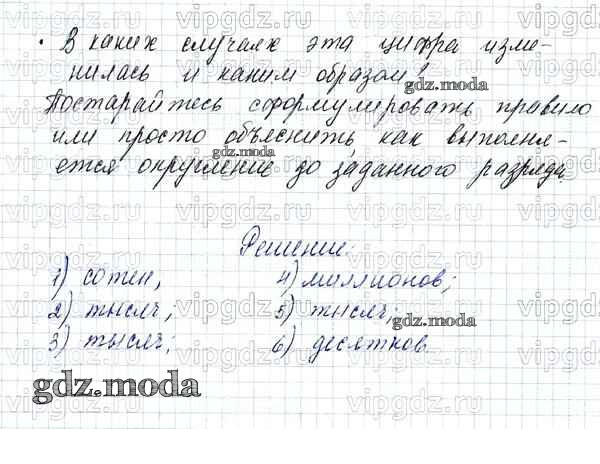 · В каких случаях эта цифра изме-
нилась и каким образом?
Постарайтесь сформулировать правило
или просто объяснить, как выполня-
ется округление до заданного разряда.
Решение:
1) сотен, 4) миллионов;
2) тысяч; 5) тысяч;
3) тысяч; 6) десятков
gdz.moda
gdz.moda
gdz.moda
gdz.moda
vipgdz.ru